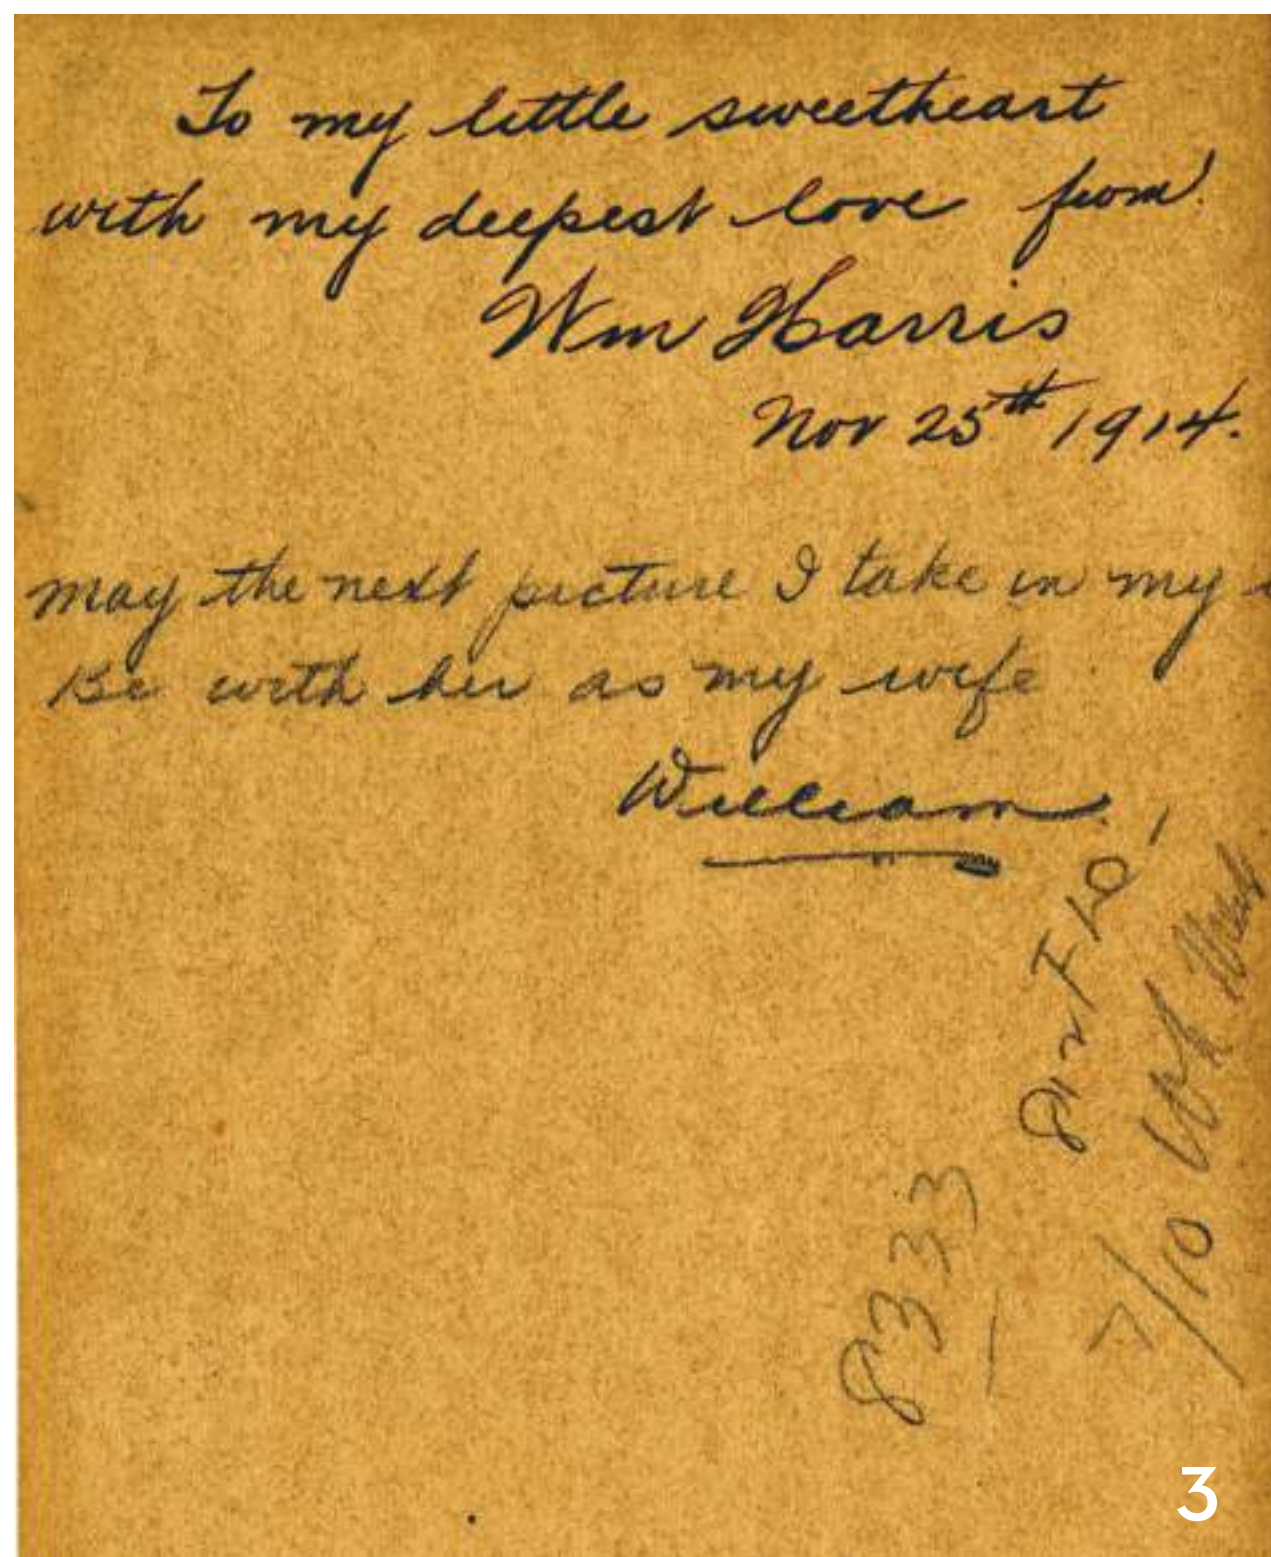 To my little sweetheart
with my deepest love from
Wm Harris
Nov 25th 1914.
may the next picture I take in my
Be with her as my wife
William
8333
7/10
3